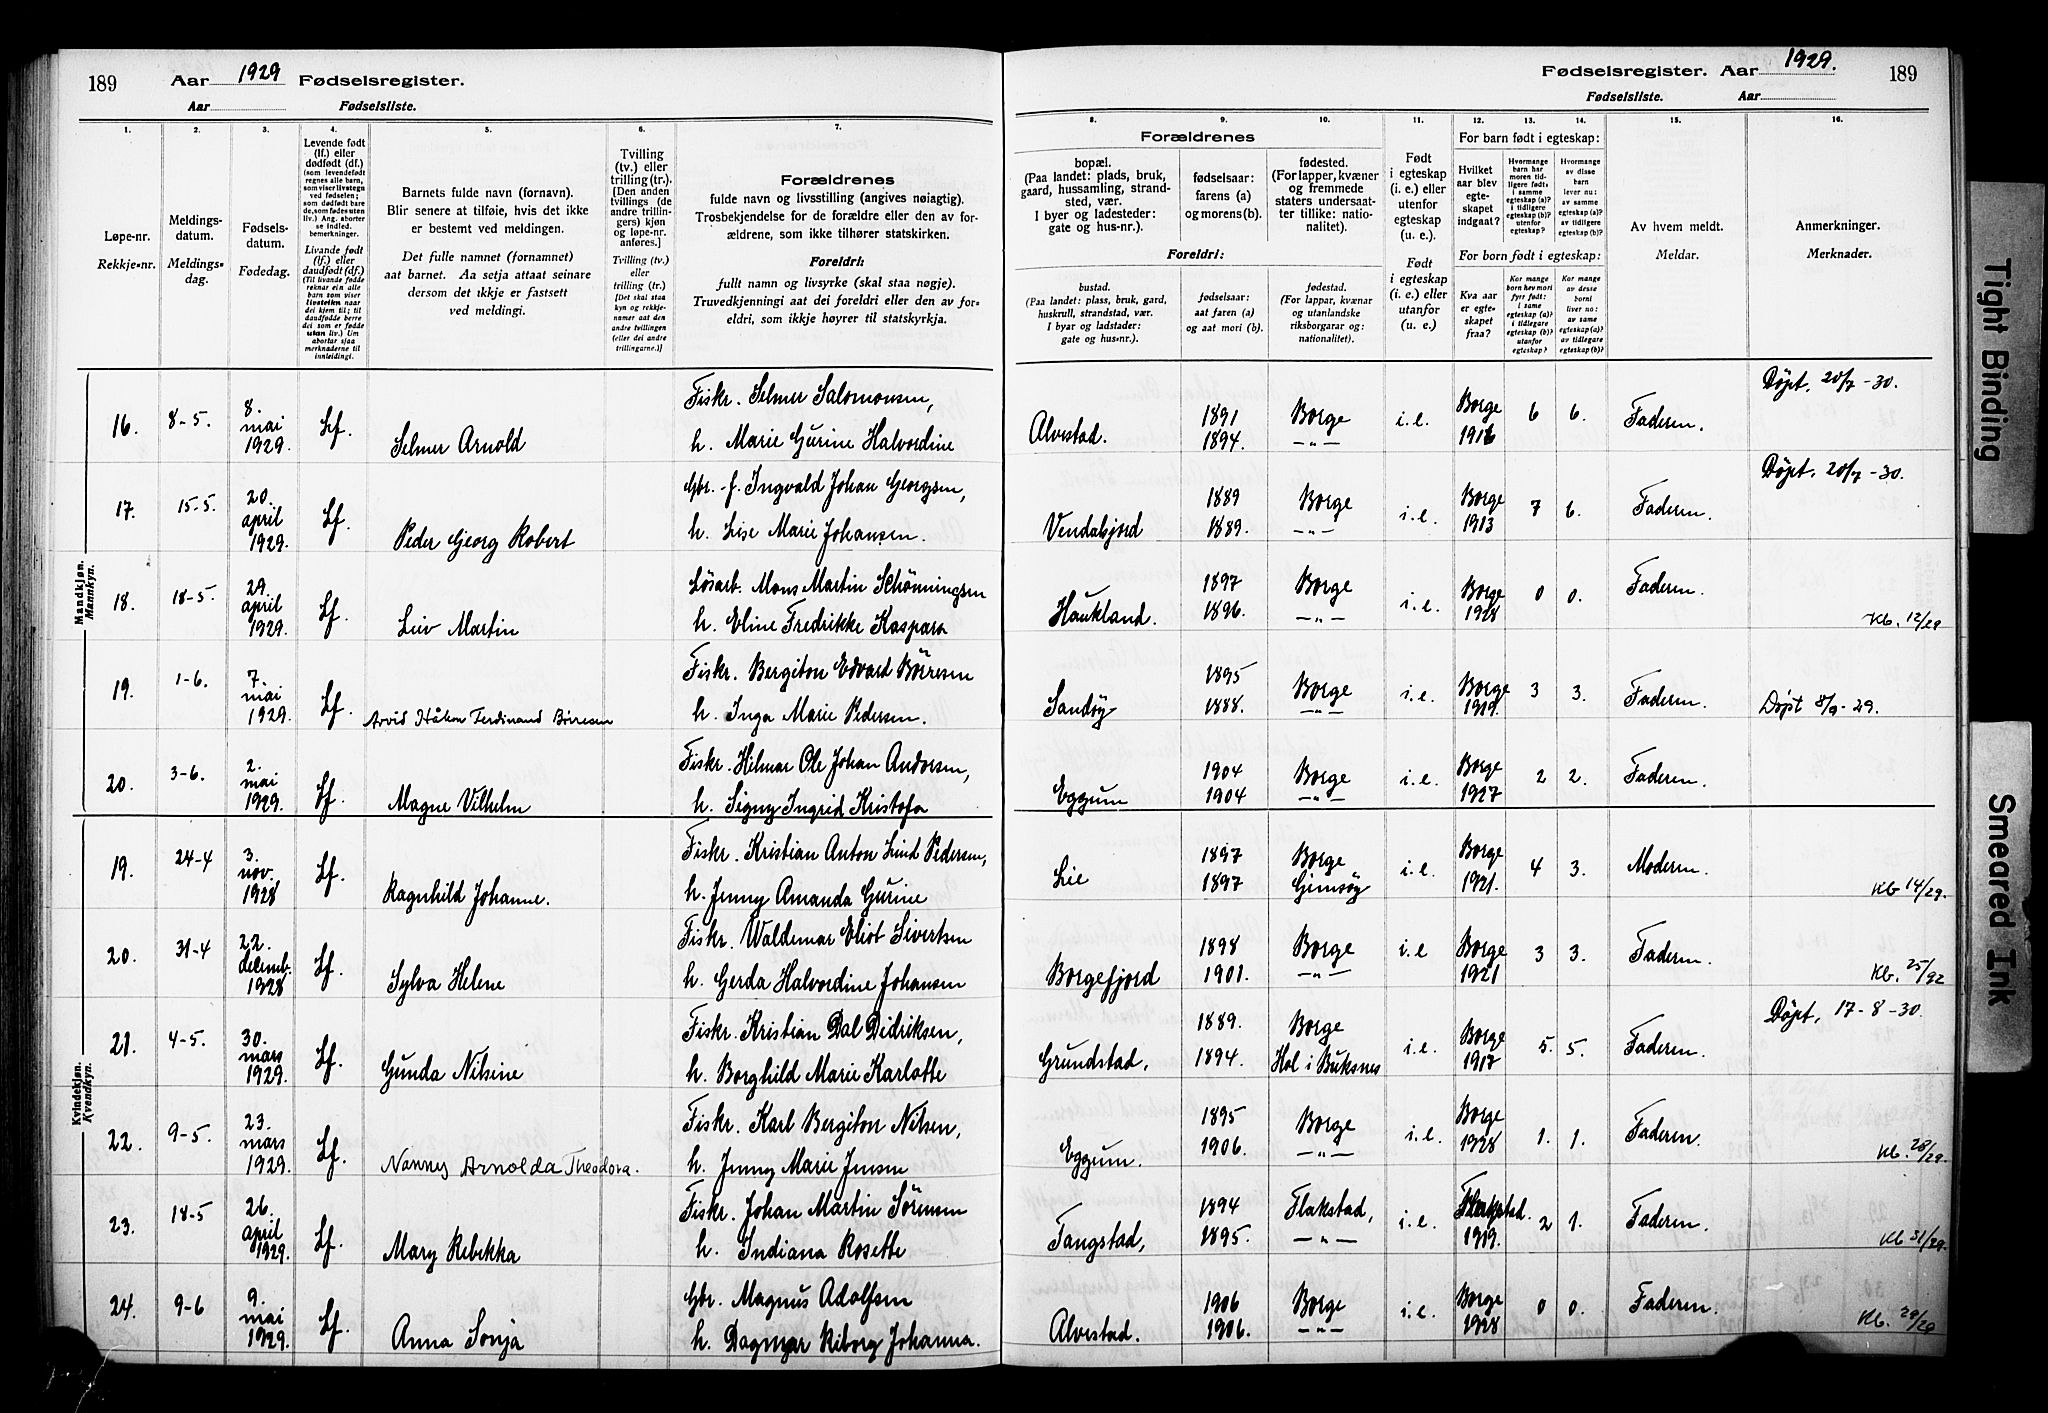 189 Aar 1929 Fødselsregister.
Aar Fødselsliste.
Fødselsregister. Aar 1929. 189
Fødselsliste. Aar
1. 2. 3. 4. 5. 6. 7.
Løpe-nr.
Rekkje-nr.
Meldings-
datum.
Meldings-
dag.
Fødsels-
datum.
Fødedag.
Levende født
(lf.) eller
dødfødt (df.)
(som levendefødt
regnes alle barn,
som viser livstegn
ved fødselen;
som dødfødt bare
de, som fødes uten
liv.) Ang. aborter
se indled.
bemerkninger.
Livande født
(lf.) eller
daudfødt (df.)
(Til livande fødde
reknar ein alle
barn som viser
livsteikn naar
dei kjem til; til
daudfødde berre
dei som er fødde
utan liv.) Um
abortar sjaa
merknaderne til
innleidingi.
Barnets fulde navn (fornavn).
Blir senere at tilføie, hvis det ikke
er bestemt ved meldingen.
Det fulle namnet (fornamnet)
aat barnet. Aa setja attaat seinare
dersom det ikkje er fastsett
ved meldingi.
Tvilling
(tv.) eller
trilling (tr.).
[Den anden
tvillings (de
andre trillin-
gers) kjøn
og løpe-nr.
anføres.]
Tvilling (tv.)
eller
trilling (tr.)
[Det skal staa
kyn og rekkje-
numer aat den
andre tvillingen
(eller dei andre
trillingarne.)]
Forældrenes
fulde navn og livsstilling (angives nøiagtig).
Trosbekjendelse for de forældre eller den av for-
ældrene, som ikke tilhører statskirken.
Foreldri:
fullt namn og livsyrke (skal staa nøgje).
Truvedkjenningi aat dei foreldri eller den av for-
eldri, som ikkje høyrer til statskyrkja.
8. 9. 10. 11. 12. 13. 14. 15. 16.
Forældrenes
bopæl.
(Paa landet: plads, bruk,
gaard, hussamling, strand-
sted, vær.
I byer og ladesteder:
gate og hus-nr.).
fødselsaar:
farens (a)
og morens (b).
fødested.
(For lapper, kvæner
og fremmede
staters undersaat-
ter tillike: natio-
nalitet).
Foreldri:
bustad.
(Paa landet: plass, bruk, gard,
huskrull, strandstad, vær.
I byar og ladstader:
gate og hus-nr.).
fødselsaar:
aat faren (a)
og aat mori (b).
fødestad.
(For lappar, kvænar
og utanlandske
riksborgarar og:
nationalitet).
Født
i egteskap
(i. e.) eller
utenfor
egteskap
(u. e.).
Født
i egteskap
(i. e.) eller
utanfor
(u. e.)
For barn født i egteskap:
Hvilket
aar blev
egte-
skapet
indgaat?
Hvormange
barn har
moren tid-
ligere født:
i samme
egteskap (a)?
i tidligere
egteskap (b)?
utenfor
egteskap?
Hvormange
av disse
barn
lever nu:
av samme
egteskap (a)?
av tidligere
egteskap (b)?
For born født i egteskap:
Kva aar
er egte-
skapet
fraa?
Kor mange
born hev mori
fyrr født:
i same
egteskap (a)?
i tidlegare
egteskap (b)?
utanfor
egteskap?
Kor mange
av desse
borni
liver no:
av same
egteskap (a)?
av tidlegare
egteskap (b)?
Av hvem meldt.
Meldar.
Anmerkninger.
Merknader.
Mandkjøn.
Mannkyn.
16. 8-5. 8. mai 1929. Lf. Selmer Arnold Fiskr. Selmer Salomonsen, h. Marie Gurine Halvordine Alvestad. 1891 1894. Borge —„— i.e. Borge 1916 6 6. Faderen. Døpt. 20/7 -30.
17. 15-5. 20. april 1929. Lf. Peder Georg Robert Gbr.-f. Ingvald Johan Georgsen, h. Lise Marie Johansen. Vendalsjord 1889 1889. Borge —„— i.e. Borge 1913 7 6. Faderen. Døpt. 20/7 -30.
18. 18-5. 29. april 1929. Lf. Leiv Martin Løsarb. Mons Martin Schønningsen h. Eline Fredrikke Kaspara Haukland. 1897 1896. Borge —„— i.e. Borge 1928 0 0. Faderen. Kb. 12/29
19. 1-6. 7. mai 1929. Lf. Arvid Håkon Ferdinand Børresen Fiskr. Bergiton Edvard Børresen h. Inga Marie Pedersen. Sandøy 1895 1888. Borge —„— i.e. Borge 1919. 3 3. Faderen. Døpt 8/9-29.
20. 3-6. 2. mai 1929. Lf. Magne Vilhelm Fiskr. Hilmar Ole Johan Andorsen, h. Signy Ingrid Kristofa Eggum 1904 1904 Borge —„— i.e. Borge 1927 2 2. Faderen.
Kvindekjøn.
Kvendkyn.
19. 24-4 3. nov. 1928 Lf. Ragnhild Johanne. Fiskr. Kristian Anton Lind Pedersen, h. Jenny Amanda Gurine Lie 1897 1897 Borge Gimsøy i.e. Borge 1921. 4 3. Moderen. Kb 14/29.
20. 31-4 22. decemb. 1928 Lf. Sylva Helene Fiskr. Waldemar Eliot Sivertsen h. Gerda Halvordine Johansen Borgefjord 1898 1901. Borge —„— i.e Borge 1921 3 3. Faderen. Kb. 25/92
21. 4-5. 30. mars 1929. Lf. Gunda Nilsine Fiskr. Kristian Dal Didriksen, h. Borghild Marie Karlotte Grundstad, 1889. 1894. Borge Hol i Buksnes i.e. Borge 1917 5. 5. Faderen. Døpt, 17-8-30.
22. 9-5. 23. mars 1929. Lf. Nanney Arnolda Theodora. Fiskr. Karl Bergiton Nilsen, h. Jenny Marie Jensen Eggum. 1895 1906. Borge —„— i.e. Borge 1928 1. 1. Faderen. Kb. 28/29.
23. 18-5 26. april 1929. Lf. Mary Rebekka Fiskr. Johan Martin Sørensen h. Indiana Rosette Tangstad, 1894 1895. Flakstad, —„— i.e. Flakstad. 1919. 2 1. Faderen. Kb 31/29.
24. 9-6 9. mai 1929. Lf. Anna Sonja Gbr. Magnus Adolfsen h. Dagmar Riborg Johanna. Alvestad. 1906 1906. Borge —„— i.e. Borge 1928 0 0. Faderen. Kb. 29/29
Tight Binding
Smeared Ink